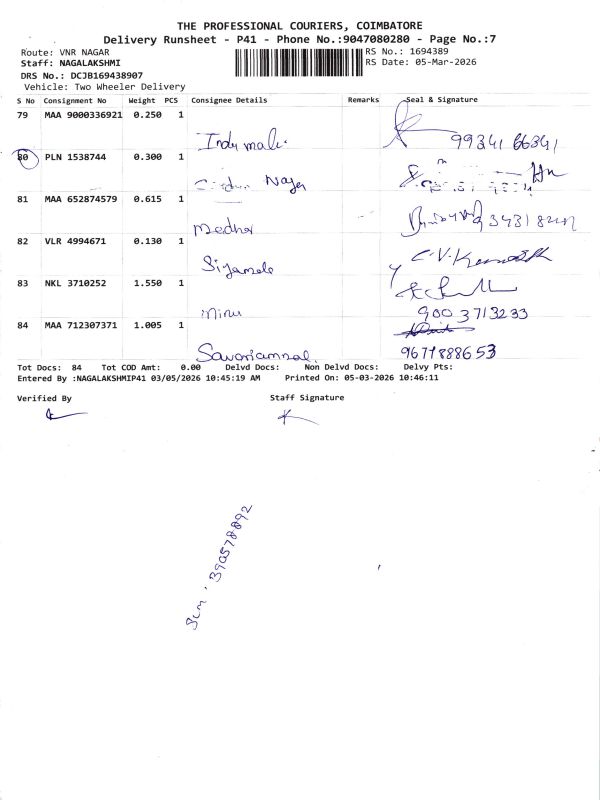 THE PROFESSIONAL COURIERS, COIMBATORE
Delivery Runsheet - P41 - Phone No.:9047080280 - Page No.:7
Route: VNR NAGAR RS No.: 1694389
Staff: NAGALAKSHMI RS Date: 05-Mar-2026
DRS No.: DCJB169438907
Vehicle: Two Wheeler Delivery
S No Consignment No Weight PCS Consignee Details Remarks Seal & Signature
79 MAA 9000336921 0.250 1
Indumali 99341 66341
80 PLN 1538744 0.300 1
Nager
81 MAA 652874579 0.615 1
Medha
82 VLR 4994671 0.130 1
Siyamala
83 NKL 3710252 1.550 1
Minu 9003713233
84 MAA 712307371 1.005 1
Savariammal 9677888653
Tot Docs: 84 Tot COD Amt: 0.00 Delvd Docs: Non Delvd Docs: Delvy Pts:
Entered By :NAGALAKSHMIP41 03/05/2026 10:45:19 AM Printed On: 05-03-2026 10:46:11
Verified By Staff Signature
390578892